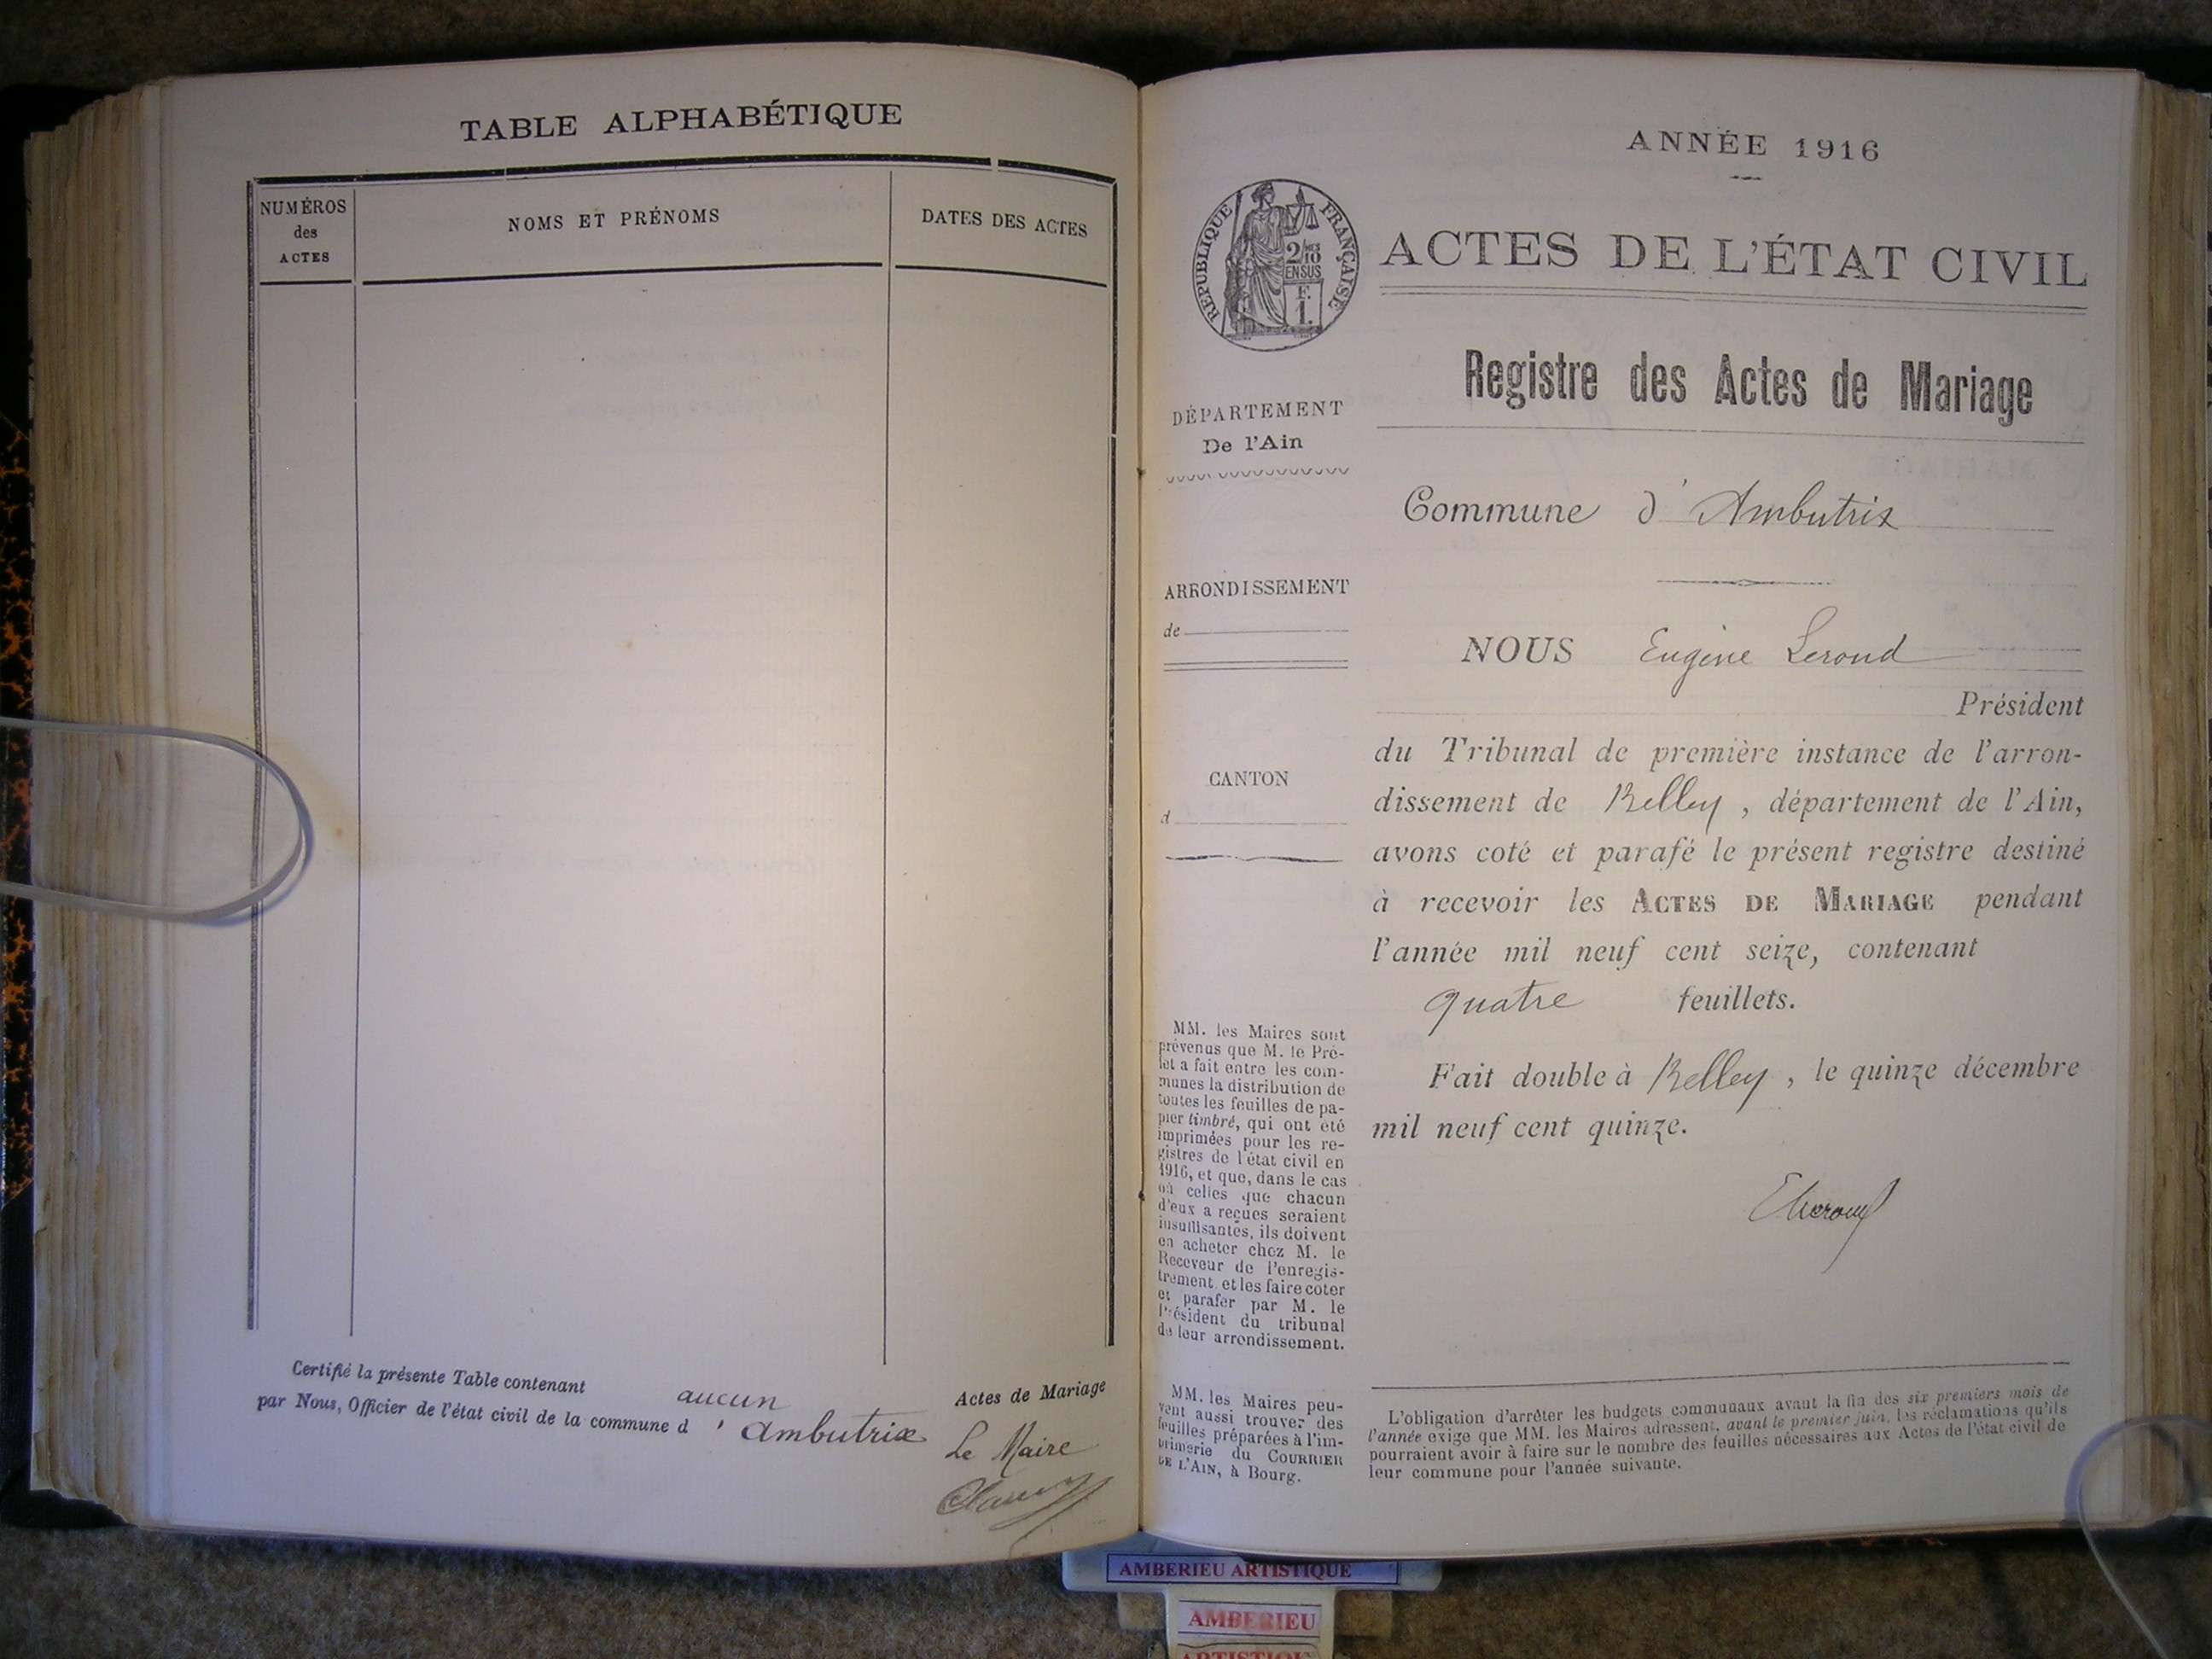 TABLE ALPHABÉTIQUE
NUMÉROS
des
ACTES
NOMS ET PRÉNOMS
DATES DES ACTES
Certifié la présente Table contenant aucun Actes de Mariage
par Nous, Officier de l'état civil de la commune d ' Ambutrix
Le Maire
ANNÉE 1916
RÉPUBLIQUE FRANÇAISE
2/10
EN SUS
F.
1.
ACTES DE L'ÉTAT CIVIL
Registre des Actes de Mariage
DÉPARTEMENT
De l'Ain
Commune d' Ambutrix
ARRONDISSEMENT
de
CANTON
d
NOUS Eugène Lerond
Président
du Tribunal de première instance de l'arron-
dissement de Belley , département de l'Ain,
avons coté et parafé le présent registre destiné
à recevoir les ACTES DE MARIAGE pendant
l'année mil neuf cent seize, contenant
quatre feuillets.
Fait double à Belley , le quinze décembre
mil neuf cent quinze.
MM. les Maires sont
prévenus que M. le Pré-
fet a fait entre les com-
munes la distribution de
toutes les feuilles de pa-
pier timbré, qui ont été
imprimées pour les re-
gistres de l'état civil en
1916, et que, dans le cas
où celles que chacun
d'eux a reçues seraient
insuffisantes, ils doivent
en acheter chez M. le
Receveur de l'enregis-
trement et les faire coter
et parafer par M. le
Président du tribunal
de leur arrondissement.
MM. les Maires peu-
vent aussi trouver des
feuilles préparées à l'im-
primerie du COURRIER
DE L'AIN, à Bourg.
L'obligation d'arrêter les budgets communaux avant la fin des six premiers mois de
l'année exige que MM. les Maires adressent, avant le premier juin, les réclamations qu'ils
pourraient avoir à faire sur le nombre des feuilles nécessaires aux Actes de l'état civil de
leur commune pour l'année suivante.
AMBERIEU ARTISTIQUE
AMBERIEU
ARTISTIQUE